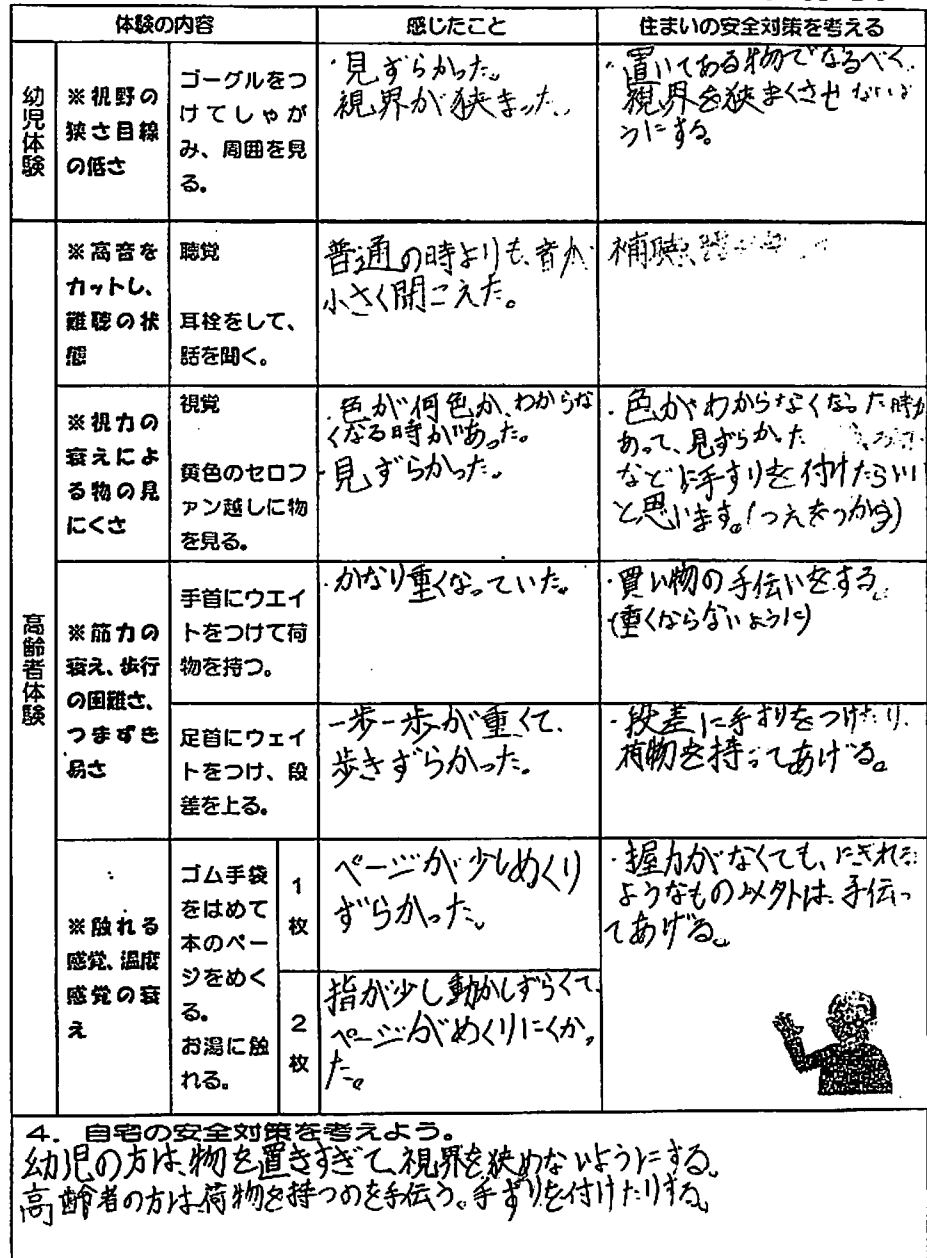 体験の内容
感じたこと
住まいの安全対策を考える
幼児体験
※視野の
狭さ目線
の低さ
ゴーグルをつ
けてしゃが
み、周囲を見
る。
・見ずらかった。
視界が狭まった。
・置いてある物でなるべく
視界を狭まくさせないよ
うにする。
高齢者体験
※高音を
カットし、
難聴の状
態
聴覚
耳栓をして、
話を聞く。
普通の時よりも、音が
小さく聞こえた。
補聴
※視力の
衰えによ
る物の見
にくさ
視覚
黄色のセロフ
ァン越しに物
を見る。
・色が何色か、わからな
くなる時があった。
・見ずらかった。
・色がわからなくなった時が
あって、見ずらかった
などに手すりを付けたらいい
と思います。(つえをつかう)
※筋力の
衰え、歩行
の困難さ、
つまずき
易さ
手首にウエイ
トをつけて荷
物を持つ。
・かなり重くなっていた。
・買い物の手伝いをする。
(重くならないように)
足首にウェイ
トをつけ、段
差を上る。
一歩一歩が重くて、
歩きずらかった。
・段差に手すりをつけたり、
荷物を持ってあげる。
※触れる
感覚、温度
感覚の衰
え
ゴム手袋
をはめて
本のペー
ジをめく
る。
お湯に触
れる。
1
枚
ページが少しめくり
ずらかった。
・握力がなくても、にぎれる
ようなもの以外は、手伝っ
てあげる。
2
枚
指が少し動かしずらくて、
ページがめくりにくかっ
た。
4. 自宅の安全対策を考えよう。
幼児の方は、物を置きすぎて、視界を狭めないようにする。
高齢者の方は、荷物を持つのを手伝う。手ずりを付けたりする。